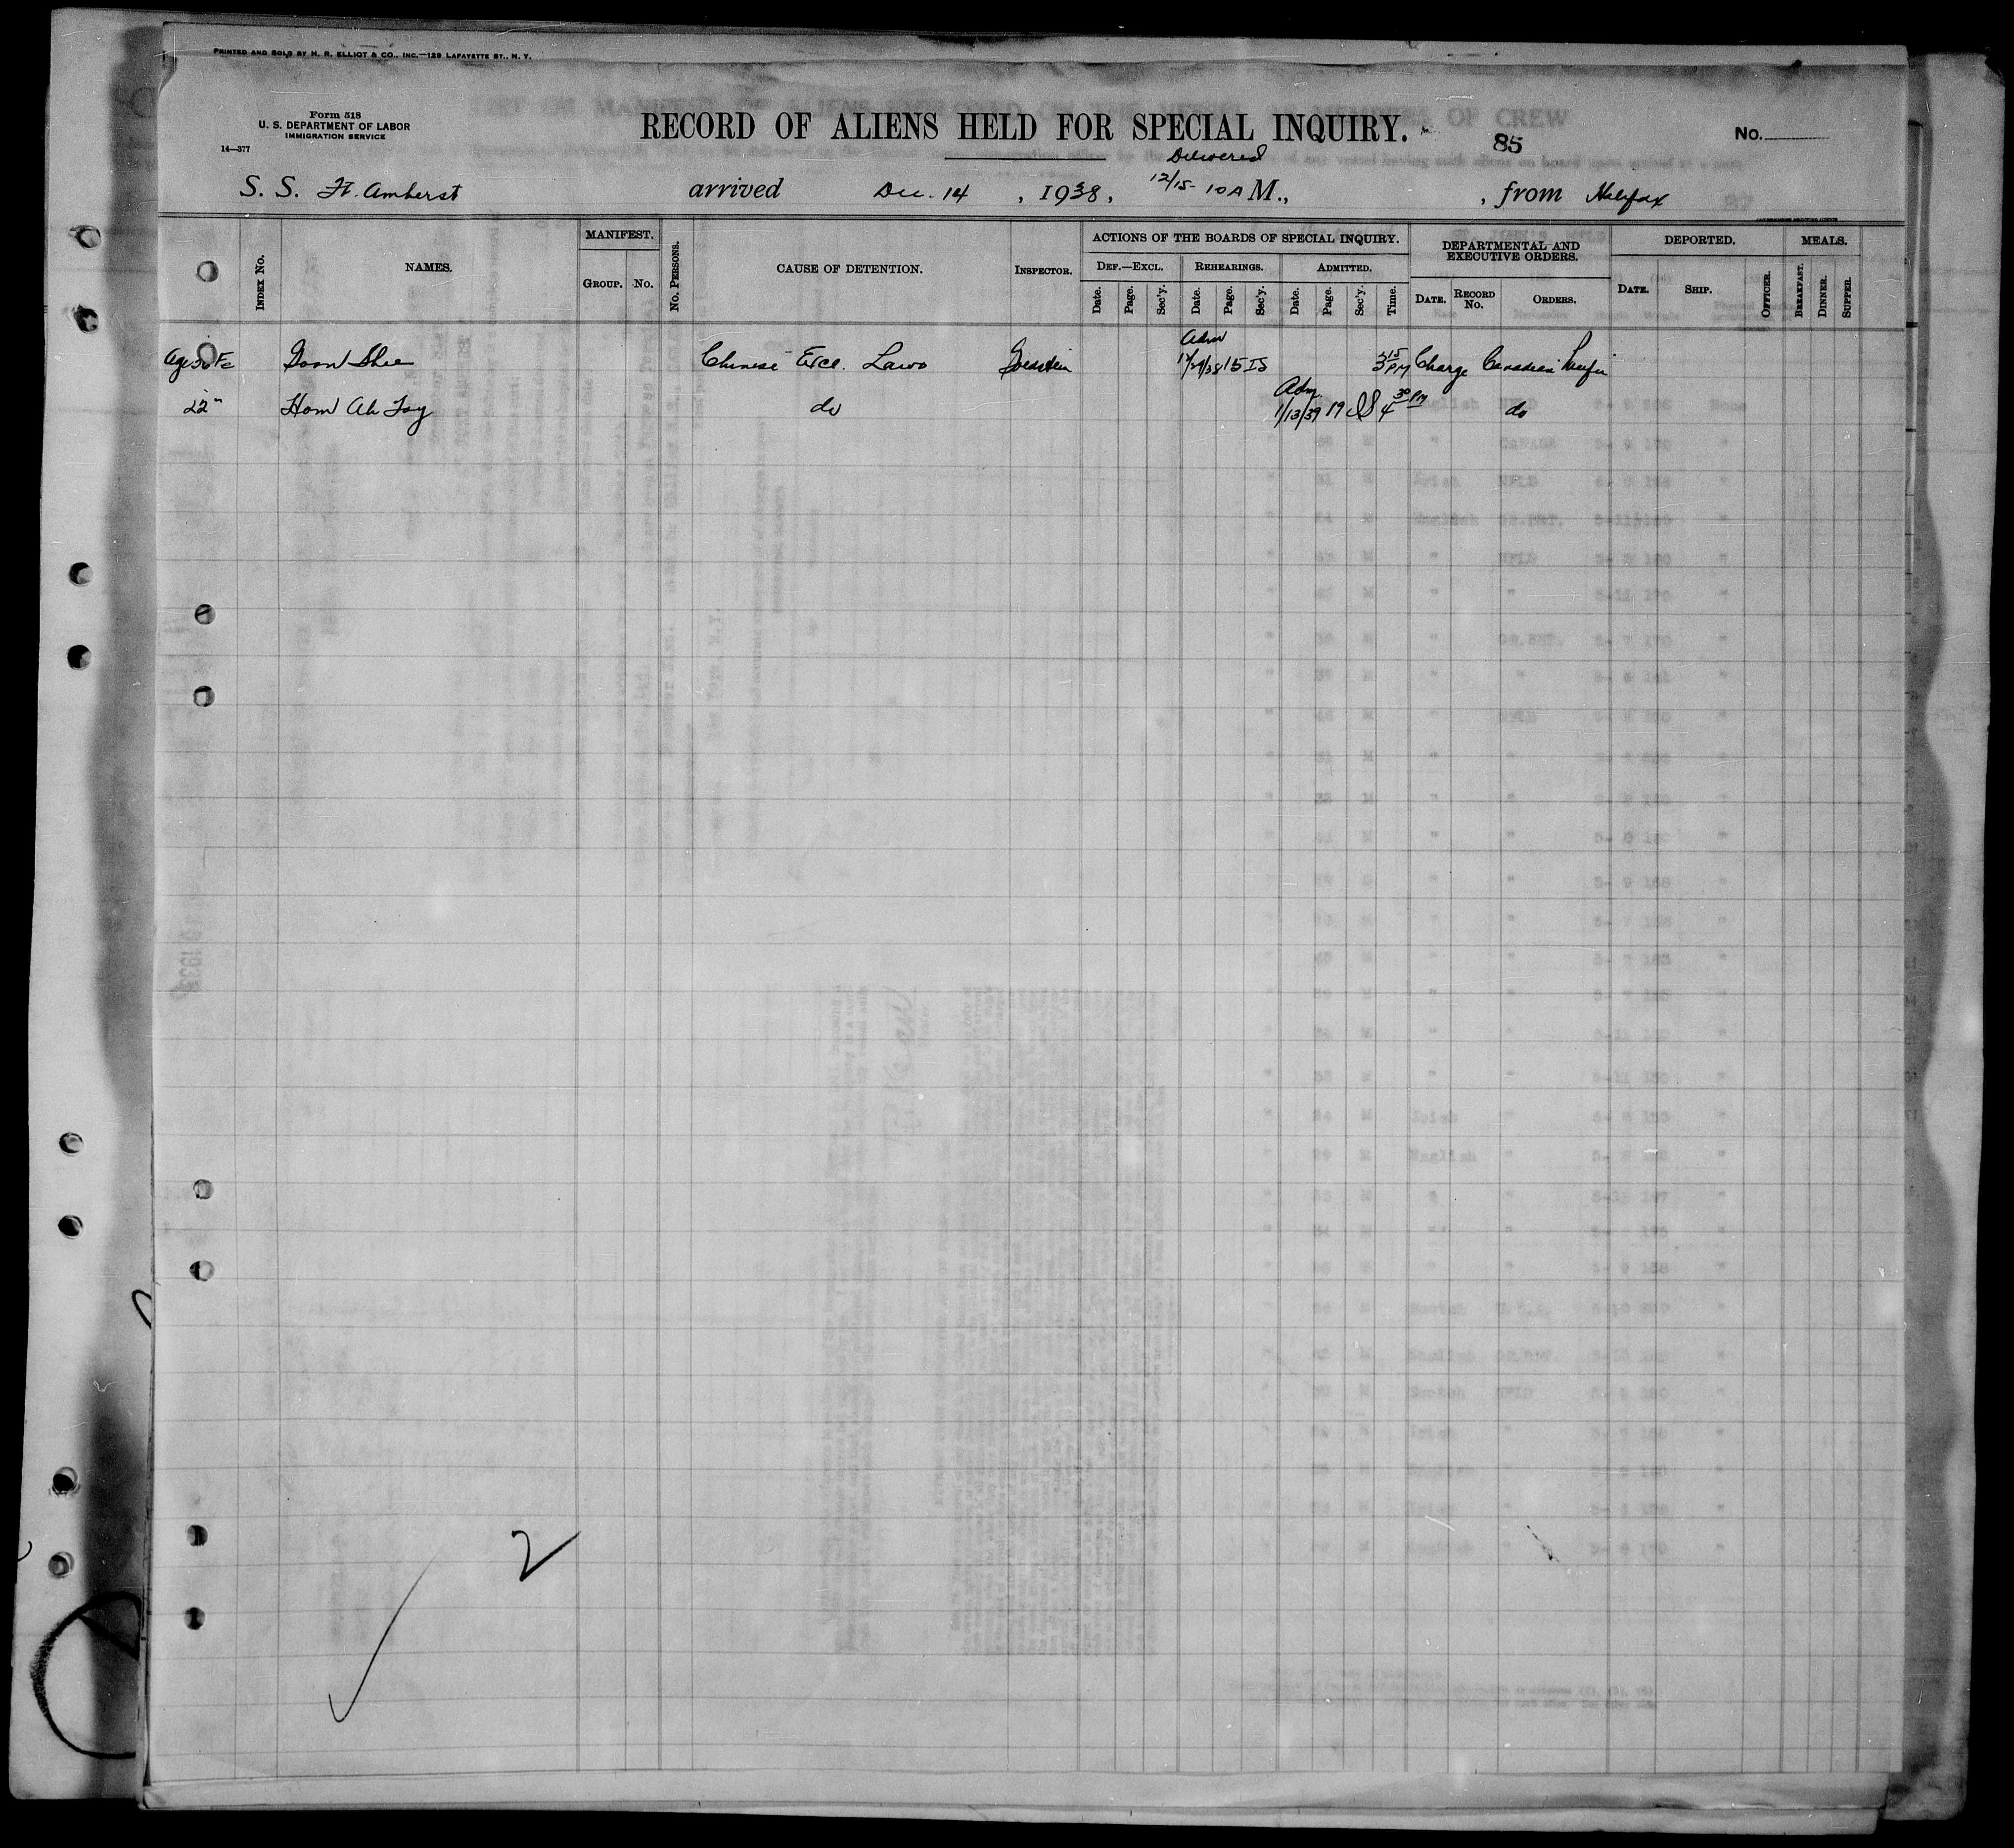 PRINTED AND SOLD BY H. R. ELLIOT & CO., INC.—129 LAFAYETTE ST., N. Y.
Form 518
U. S. DEPARTMENT OF LABOR
IMMIGRATION SERVICE
14—377
RECORD OF ALIENS HELD FOR SPECIAL INQUIRY.
85
No.
Delivered
S. S. Ft. Amherst arrived Dec. 14, 1938, 12/15- 10 A M., , from Halifax
INDEX No.
NAMES.
MANIFEST.
GROUP. No.
No. PERSONS.
CAUSE OF DETENTION.
INSPECTOR.
ACTIONS OF THE BOARDS OF SPECIAL INQUIRY.
DEF.—EXCL. REHEARINGS. ADMITTED.
Date. Page. Sec'y. Date. Page. Sec'y. Date. Page. Sec'y. Time.
DEPARTMENTAL AND EXECUTIVE ORDERS.
DATE. RECORD No. ORDERS.
DEPORTED.
DATE. SHIP. OFFICER.
MEALS.
BREAKFAST. DINNER. SUPPER.
Adm
Age Shee Chinese Excl. Laws 15 IS 3 15 PM Charge Canadian
Adm
22 " Hom Ah do 1/13/39 19 4 30 PM do
2